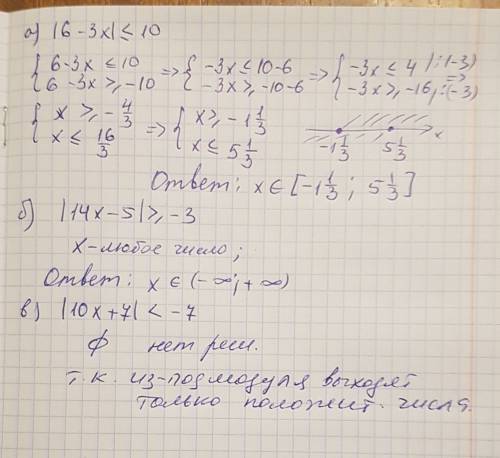 а) |6-3x| ≤ 10
{ 6-3x ≤ 10 => { -3x ≤ 10-6 => { -3x ≤ 4 |:(-3) =>
{ 6-3x ≥ -10 { -3x ≥ -10-6 { -3x ≥ -16 |:(-3)
{ x ≥ -4/3 => { x ≥ -1 1/3
{ x ≤ 16/3 { x ≤ 5 1/3 -1 1/3 5 1/3 x
Ответ: x ∈ [-1 1/3; 5 1/3]
б) |14x-5| ≥ -3
x-любое число;
Ответ: x ∈ (-∞; +∞)
в) |10x+7| < -7
∅ нет реш.
т.к. из-под модуля выходят
только положит. числа.